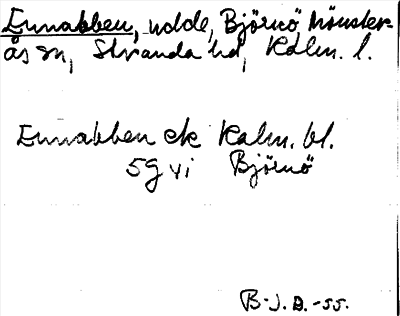 Ennabben, udde, Björnö Mönster-
ås sn, Stranda hd, Kalm. l.
Ennabben ek Kalm. bl.
5g vi Björnö
B-J. D. -55.